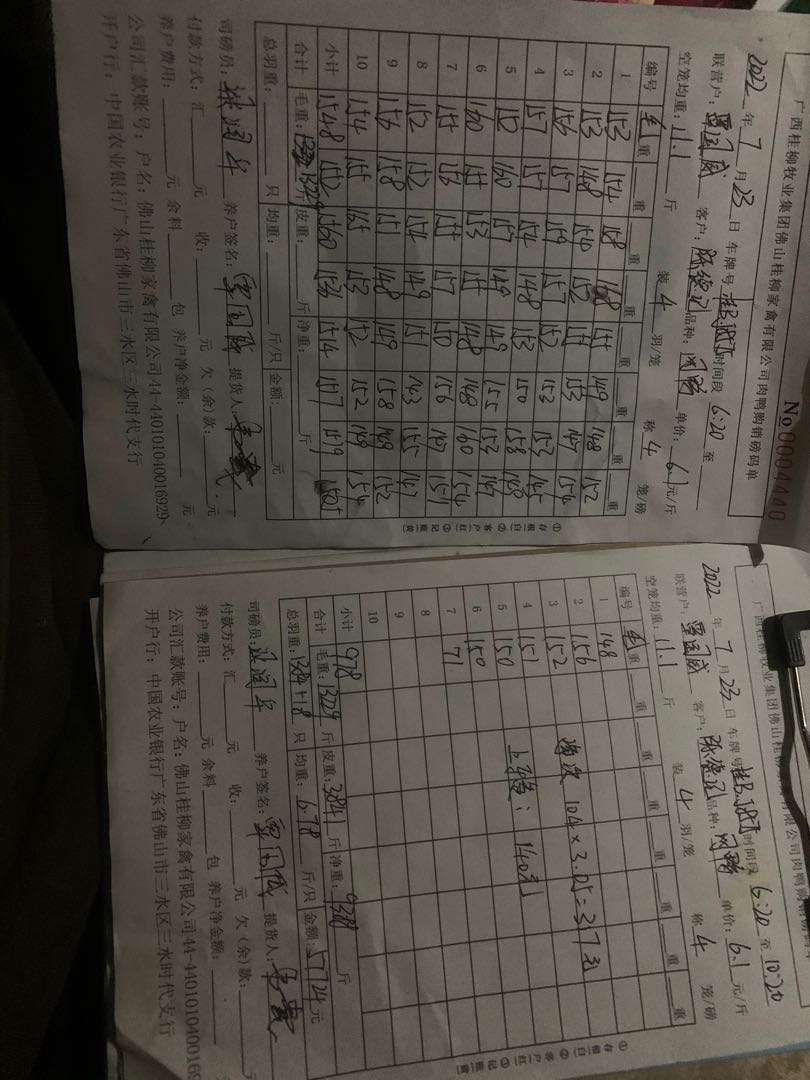 广西桂柳牧业集团佛山桂柳家禽有限公司肉鸭购销磅码单
No 0004440
2022 年 7 月 23 日 车牌号 时间段 6:20 至
联营户：覃国威 客户：陈德引 品种： 单价：6.1元/斤
空笼均重：11.1 斤 装 4 羽/笼 称 4 笼/磅
编号 毛重 重 重 重 重 重 重 重
1 153 154 158 168 155 149 148 152
2 153 148 154 152 155 153 147 154
3 156 157 159 157 152 153 153 145
4 157 157 154 148 153 150 158 148
5 152 160 157 149 149 155 153 147
6 160 155 153 155 148 148 160 154
7 155 156 155 157 150 156 147 152
8 152 152 154 149 151 143 155 147
9 156 158 151 148 149 158 149 152
10 154 155 165 153 152 152 149 154
小计 1548 1552 1560 1536 1514 1517 1519 1505
合计 毛重：13229斤 皮重： 斤 净重： 斤
总羽重： 只 均重： 斤/只 金额： 元
司磅员： 养户签名：覃国威 提货人：
付款方式：汇 元 收： 元 欠(余)款： 元
养户费用： 元 余料 包 养户净金额： 元
公司汇款账号：户名：佛山桂柳家禽有限公司44-440101040016929
开户行：中国农业银行广东省佛山市三水区三水时代支行
①存根白 ②客户红 ③记账黄
广西桂柳牧业集团佛山桂柳家禽有限公司肉鸭购销磅码单
2022 年 7 月 23 日 车牌号 时间段 6:20 至 10:20
联营户：覃国威 客户：陈德引 品种： 单价：6.1元/斤
空笼均重：11.1 斤 装 4 羽/笼 称 4 笼/磅
编号 毛重 重 重 重 重 重 重 重
1 148
2 156
3 152
4 151
5 150
6 150
7 71
8
9
10
104×3.05=317元
140元
小计 978
合计 毛重：13229斤 皮重：3841斤 净重：9388斤
总羽重：1384+18只 均重：6.78斤/只 金额：57724元
司磅员： 养户签名：覃国威 提货人：
付款方式：汇 元 收： 元 欠(余)款： 元
养户费用： 元 余料 包 养户净金额：
公司汇款账号：户名：佛山桂柳家禽有限公司44-4401010400169
开户行：中国农业银行广东省佛山市三水区三水时代支行
①存根白 ②客户红 ③记账黄